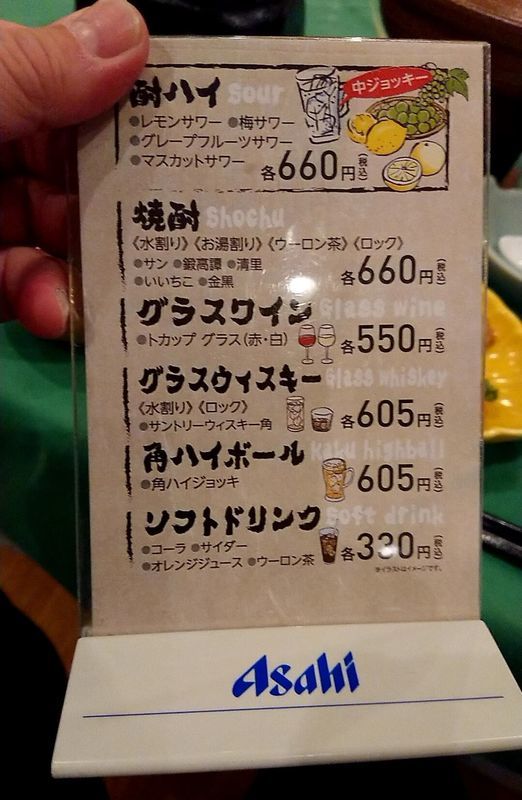 酎ハイ Sour
中ジョッキー
●レモンサワー ●梅サワー
●グレープフルーツサワー
●マスカットサワー 各660円(税込)
焼酎 Shochu
《水割り》《お湯割り》《ウーロン茶》《ロック》
●サン ●鍛高譚 ●清里
●いいちこ ●金黒 各660円(税込)
グラスワイン Glass wine
●トカップ グラス(赤・白) 各550円(税込)
グラスウィスキー Glass whiskey
《水割り》《ロック》
●サントリーウィスキー角 各605円(税込)
角ハイボール Kaku highball
●角ハイジョッキ 605円(税込)
ソフトドリンク Soft drink
●コーラ ●サイダー
●オレンジジュース ●ウーロン茶 各330円(税込)
※イラストはイメージです。
Asahi